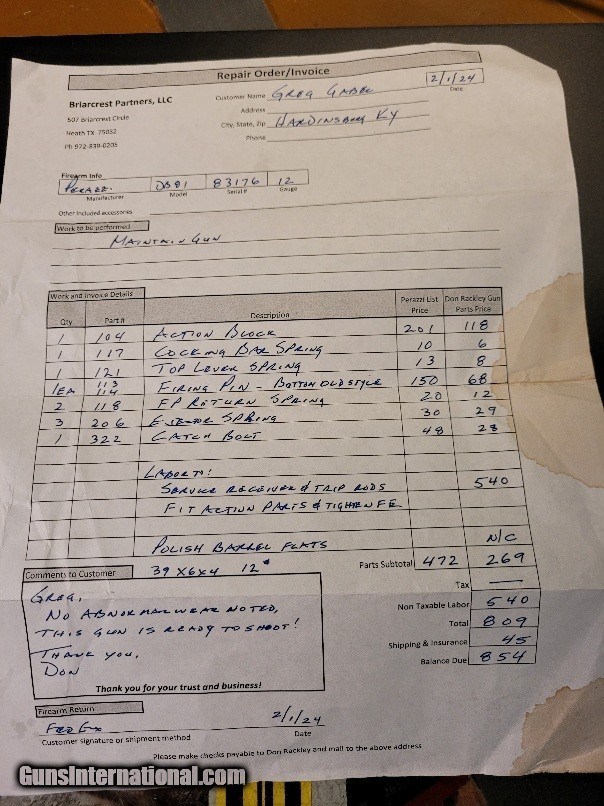 Repair Order/Invoice
Briarcrest Partners, LLC
507 Briarcrest Circle
Heath TX 75032
Ph 972-839-0205
Customer Name GREG GABEL
2/1/24
Date
Address
City, State, Zip HARDINSBURG KY
Phone
Firearm Info
DB81 83176 12
Manufacturer Model Serial # Gauge
Other included accessories
Work to be performed
MAINTAIN GUN
Work and Invoice Details
Qty Part # Description Perazzi List Price Don Rackley Gun Parts Price
1 104 ACTION BLOCK 201 118
1 117 COCKING BAR SPRING 10 6
1 121 TOP LEVER SPRING 13 8
1EA 113 114 FIRING PIN - BOTTOM OLD STYLE 150 68
2 118 FP RETURN SPRING 20 12
3 206 SPRING 30 29
1 322 CATCH BOLT 48 28
LABOR
SERVICE RECEIVER & TRIP RODS 540
FIT ACTION PARTS & TIGHTEN FE
POLISH BARREL FLATS N/C
39 X6X4 12
Parts Subtotal 472 269
Tax —
Non Taxable Labor 540
Total 809
Shipping & Insurance 45
Balance Due 854
Comments to Customer
GREG,
NO ABNORMAL WEAR NOTED,
THIS GUN IS READY TO SHOOT!
THANK YOU,
DON
Thank you for your trust and business!
Firearm Return
FED EX
2/1/24
Customer signature or shipment method Date
Please make checks payable to Don Rackley and mail to the above address
GunsInternational.com